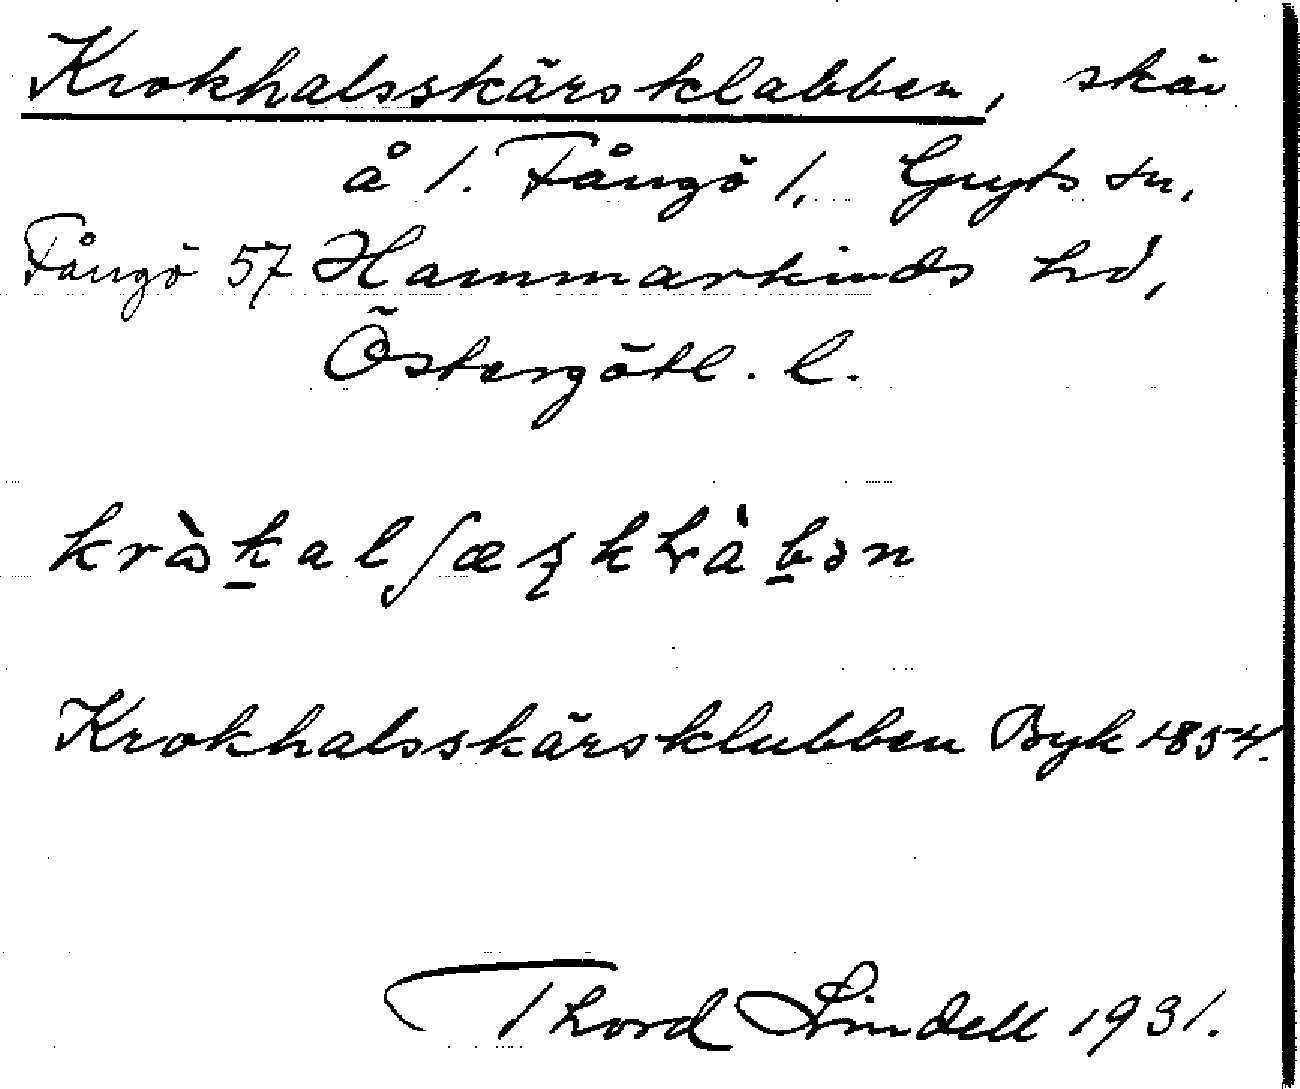 Krokhalsskärsklabben, skär
å 1. Fångö 1, Gryts sn,
Fångö 57 Hammarkinds hd,
Östergötl. l.
kràkalʃæʂkɽàbən
Krokhalsskärsklubben Byk 1854.
Thord Lindell 1931.